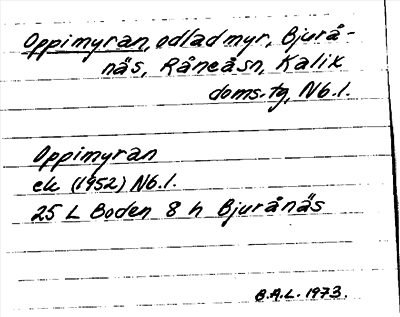 Oppimyran, odlad myr, Bjurå-
näs, Råneåsn, Kalix
doms.tg, Nb.l.
Oppimyran
ek (1952) Nb.l.
25 L Boden 8 h Bjurånäs
B.A.L. 1973.